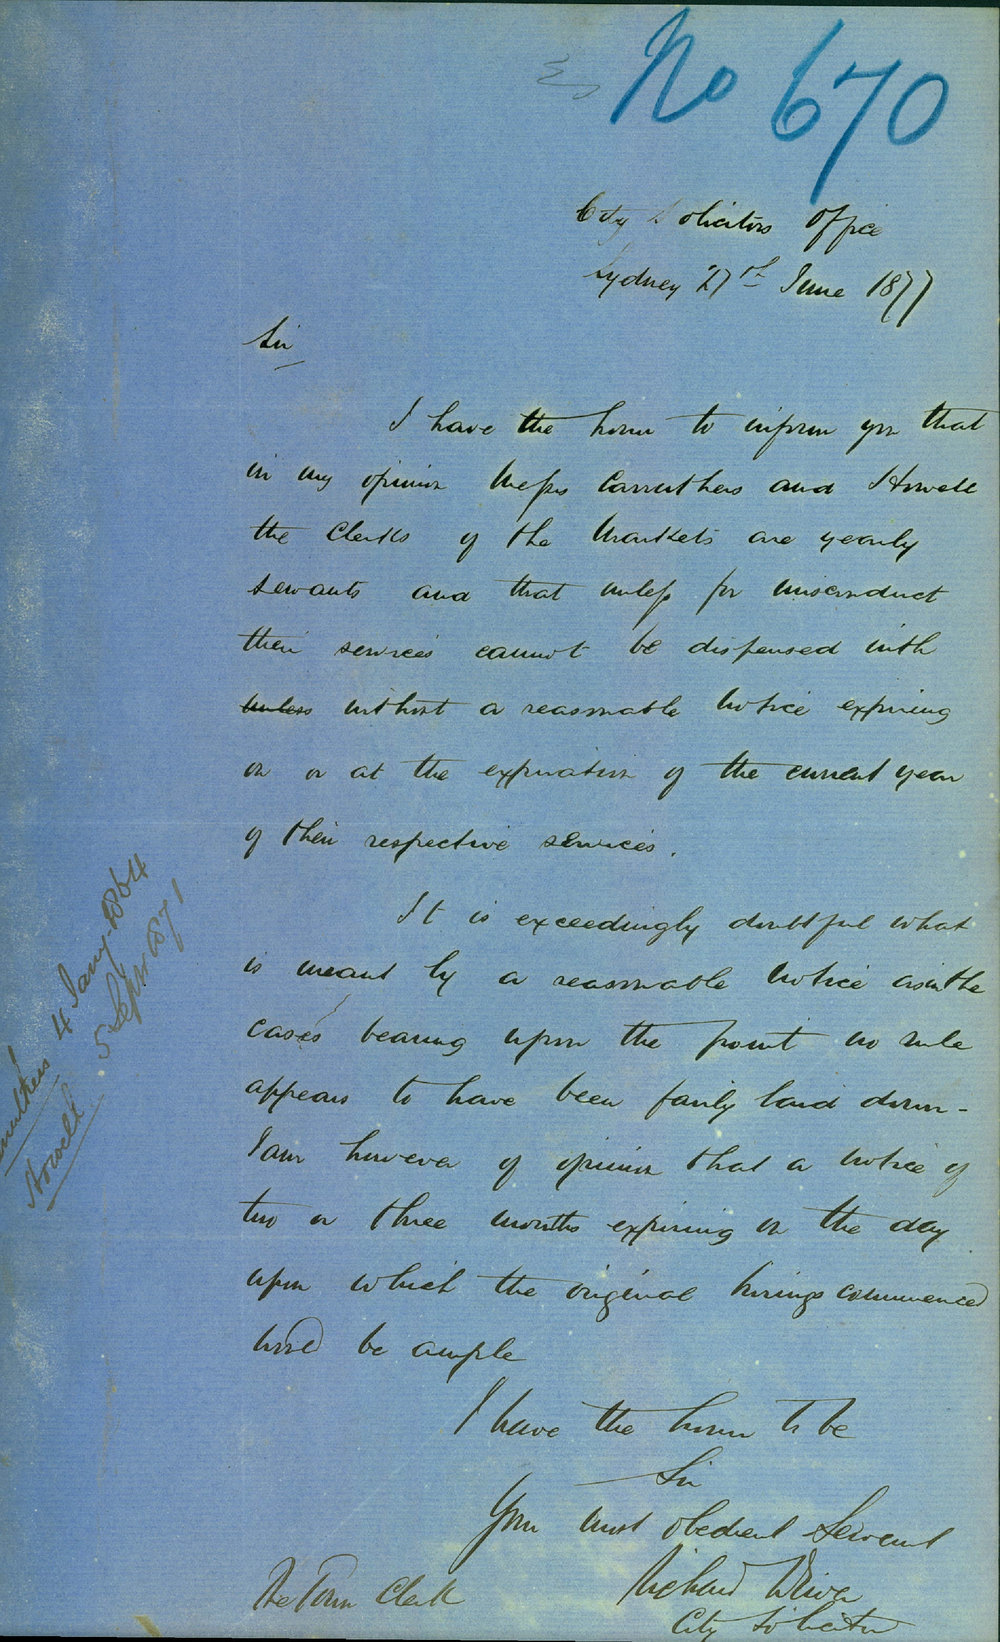 No 670
City Solicitors Office
Sydney 27th June 1877
Sir
I have the honor to inform you that
in my opinion Messrs Carruthers and Howell
the Clerks of the Markets are yearly
servants and that unless for misconduct
their services cannot be dispensed with
unless without a reasonable notice expiring
on or at the expiration of the current year
of their respective services.
It is exceedingly doubtful what
is meant by a reasonable notice as in the
cases bearing upon the point no rule
appears to have been fairly laid down -
I am however of opinion that a notice of
two or three months expiring on the day
upon which the original hirings commenced
would be ample
I have the honor to be
Sir
Your most obedient Servant
Richard Driver
City Solicitor
The Town Clerk
Carruthers 4 Jany. 1864
Howell 5 Sept 1871